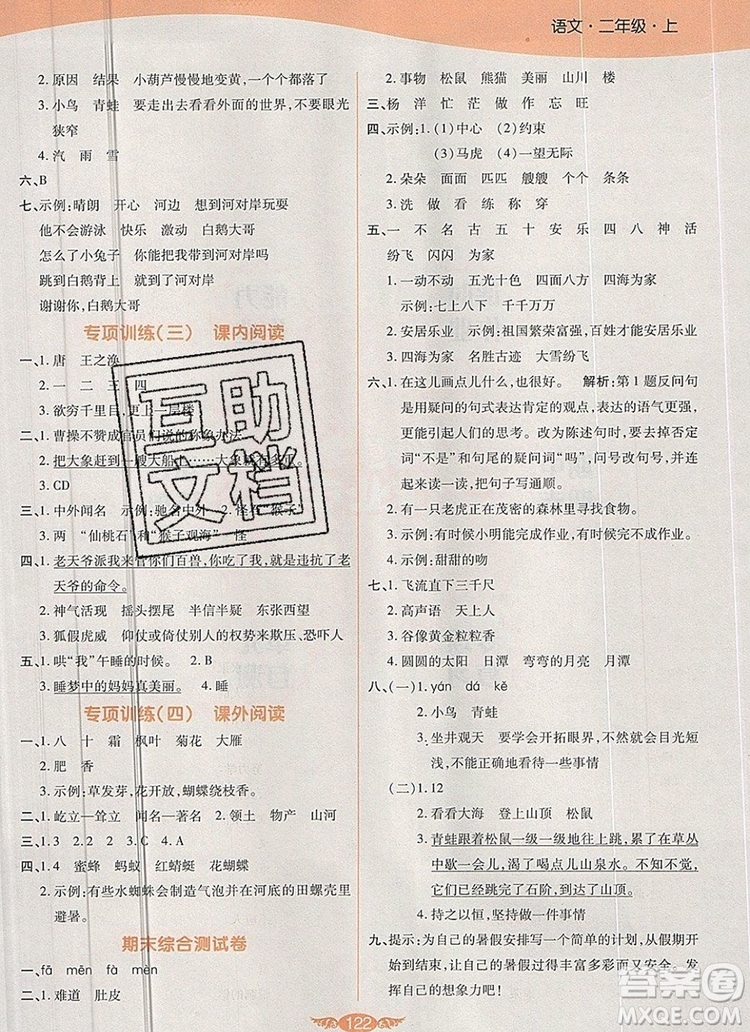 语文·二年级·上
2. 原因 结果 小葫芦慢慢地变黄,一个一个都落了
3. 小鸟 青蛙 要多出去看看外面的世界,不要眼光
狭窄
4. 汽 雨 雪
六、B
七、示例:晴朗 开心 河边 想到河对岸玩耍
他不会游泳 快乐 激动 白鹅大哥
怎么了小兔子 你能把我带到河对岸吗
跳到白鹅背上 河对岸
谢谢你,白鹅大哥
专项训练(三) 课内阅读
一、1. 唐 王之涣
2. 一 二 三 四
3. 欲穷千里目,更上一层楼
二、1. 曹操不赞成官员们说的称象办法
2. 把大象赶到一艘大船上……大象就有多重。
3. CD
三、1. 中外闻名 示例:驰名中外 2. 怪石 猴子
3. 两 “仙桃石”和“猴子观海” 怪
四、1. 老天爷派我来管你们百兽,你吃了我,就是违抗了老
天爷的命令。
2. 神气活现 摇头摆尾 半信半疑 东张西望
3. 狐假虎威 仰仗或倚仗别人的权势来欺压、恐吓人
五、1. 哄“我”午睡的时候。 2. B
3. 睡梦中的妈妈真美丽。 4. 睡
专项训练(四) 课外阅读
一、1. 八 十 霜 枫叶 菊花 大雁
2. 肥 香
3. 示例:草发芽,花开放,蝴蝶绕枝香。
二、1. 屹立—耸立 闻名—有名 2. 领土 物产 山河
三、1. 3 2. 2 3. C 4. A
四、1. 4 蜜蜂 蚂蚁 红蜻蜓 花蝴蝶
3. 示例:有些水蜘蛛会制造气泡并在河底的田螺壳里
避暑。
期末综合测试卷
一、fā mēn fà mèn
二、1. 难道 肚皮
2. 事物 松鼠 熊猫 美丽 山川 楼
三、杨 洋 忙 茫 做 作 忘 旺
四、示例:1. (1)中心 (2)约束
(3)马虎 (4)一望无际
2. 朵朵 面面 匹匹 艘艘 个个 条条
3. 洗 做 看 练 称 穿
五、一 不 名 古 五 十 安 乐 四 八 神 活
纷飞 闪闪 为家
1. 一动不动 五光十色 四面八方 四海为家
示例:七上八下 千千万万
2. 安居乐业 示例:祖国繁荣富强,百姓才能安居乐业
3. 四海为家 名胜古迹 大雪纷飞
六、1. 在这儿画点儿什么,也很好。 解析:第1题反问句
是用疑问的句式表达肯定的观点,表达的语气更强,
更能引起人们的思考。改为陈述句时,要去掉“难道
不是”和句尾的疑问词“吗”,问号改句号,并连起
来读一读,把句子写通顺。
2. 有一只老虎正在茂密的森林里寻找食物。
3. 示例:有时候小明能完成作业,有时候不能完成作业。
4. 示例:甜甜的吻
七、1. 飞流直下三千尺
2. 高声语 天上人
3. 谷像黄金粒粒香
4. 圆圆的太阳 日潭 弯弯的月亮 月潭
八、(一)1. yán dá kě
2. 小鸟 青蛙
3. 坐井观天 要学会开拓眼界,不要总是目光
短浅
(二)1. 12
2. 看看大海 登上山顶 松鼠
3. 青蛙跟着松鼠一级一级地往上跳,累了在草丛
中歇一会儿,渴了喝点儿山泉水。终于,
它们已经跳完了石阶,到达了山顶。
4. 持之以恒 坚持做完一件事情
九、提示:为自己的暑假安排写一个简单的计划,从暑假开
始到结束,让自己的暑假丰富多彩而又有意义。发挥
自己的想象力吧!
122
互助文档
答案圈
MXQE.COM